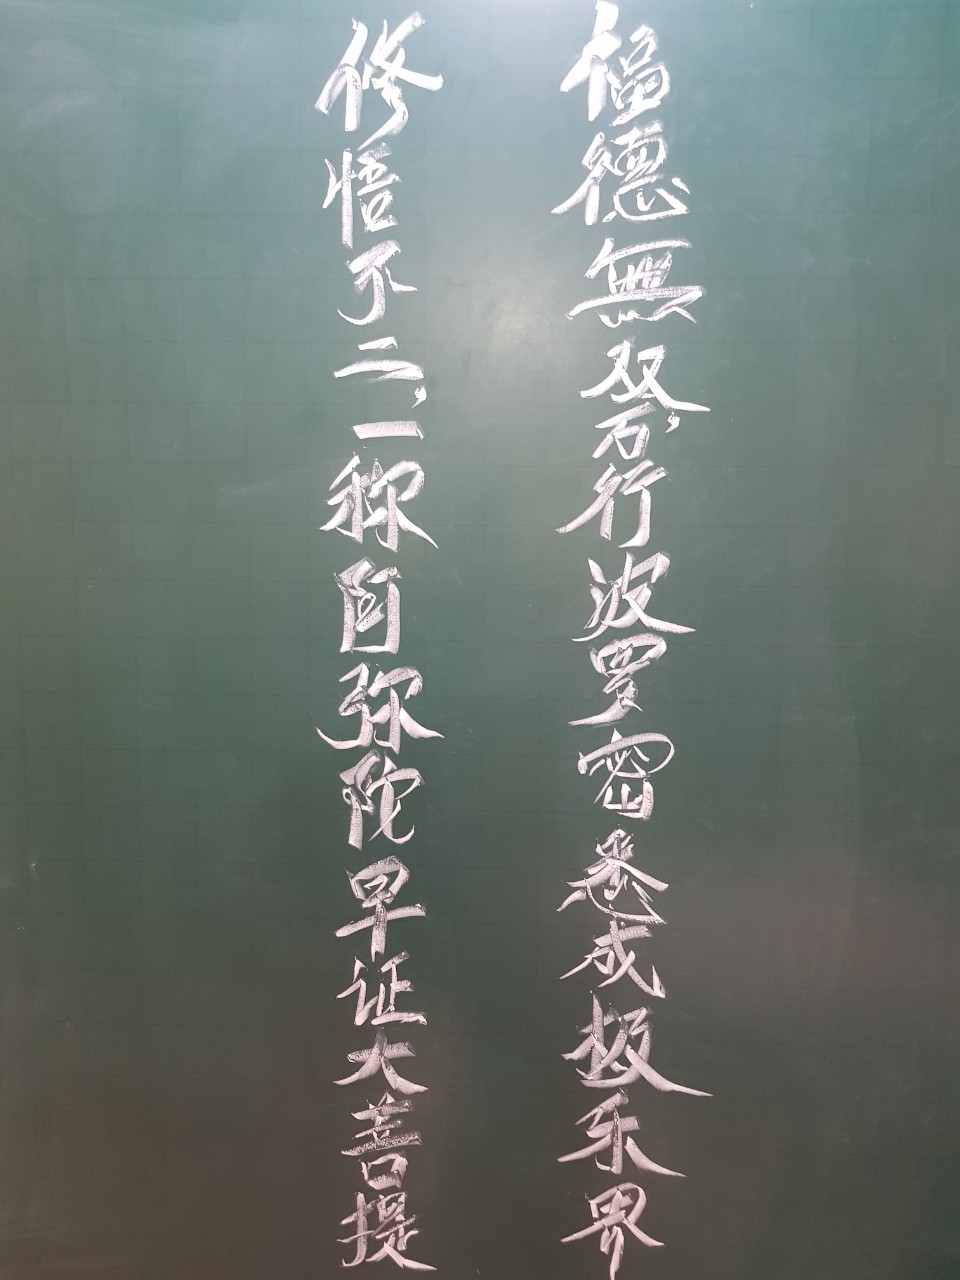 福德無双，万行波罗密悉成极乐界
修悟不二，一称阿弥陀早证大菩提